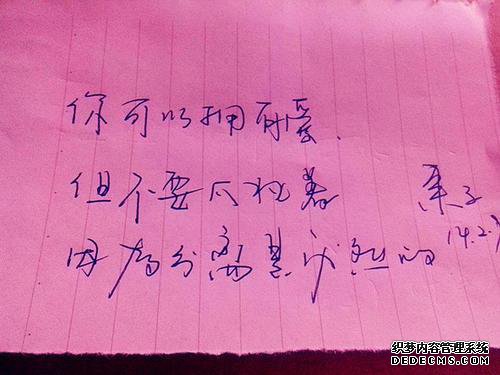 你可以拥有爱、
但不要执着
因为分离是必然的
14.2.
织梦内容管理系统
DEDECMS.COM